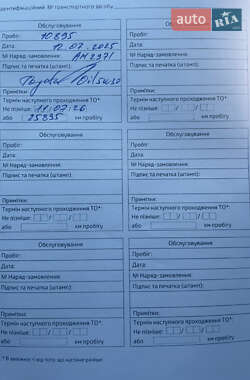 Ідентифікаційний № транспортного засобу
AUTO RIA.com
Обслуговування
Пробіг: 10895
Дата: 12.07.2025
№ Наряд-замовлення: АМ2371
Підпис та печатка (штамп):
Термін наступного проходження ТО*:
Не пізніше: 11.07.26
або 25895 км пробігу
Обслуговування
Пробіг:
Дата:
№ Наряд-замовлення:
Підпис та печатка (штамп):
Термін наступного проходження ТО*:
Не пізніше:
або км пробігу
Обслуговування
Пробіг:
Дата:
№ Наряд-замовлення:
Підпис та печатка (штамп):
Термін наступного проходження ТО*:
Не пізніше:
або км пробігу
Обслуговування
Пробіг:
Дата:
№ Наряд-замовлення:
Підпис та печатка (штамп):
Термін наступного проходження ТО*:
Не пізніше:
або км пробігу
Обслуговування
Пробіг:
Дата:
№ Наряд-замовлення:
Підпис та печатка (штамп):
Термін наступного проходження ТО*:
Не пізніше:
або км пробігу
Обслуговування
Пробіг:
Дата:
№ Наряд-замовлення:
Підпис та печатка (штамп):
Термін наступного проходження ТО*:
Не пізніше:
або км пробігу
* В залежності від того що настане раніше